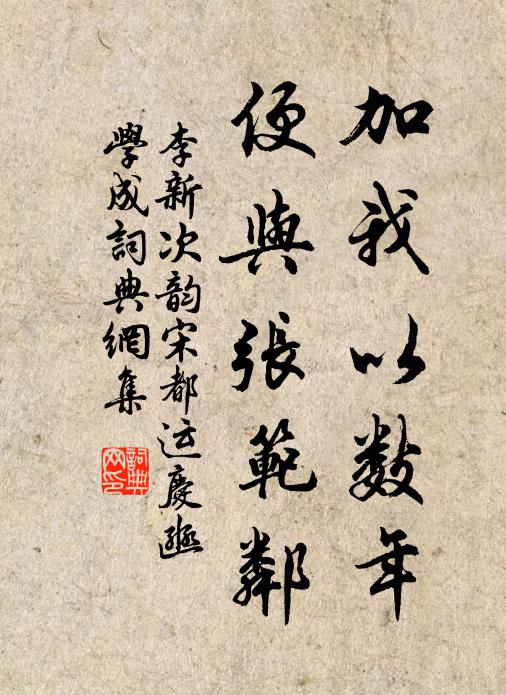 加我以數年
便與張範鄰
李新次韵宋都运慶遜
學成詞典網集
詞典
网印